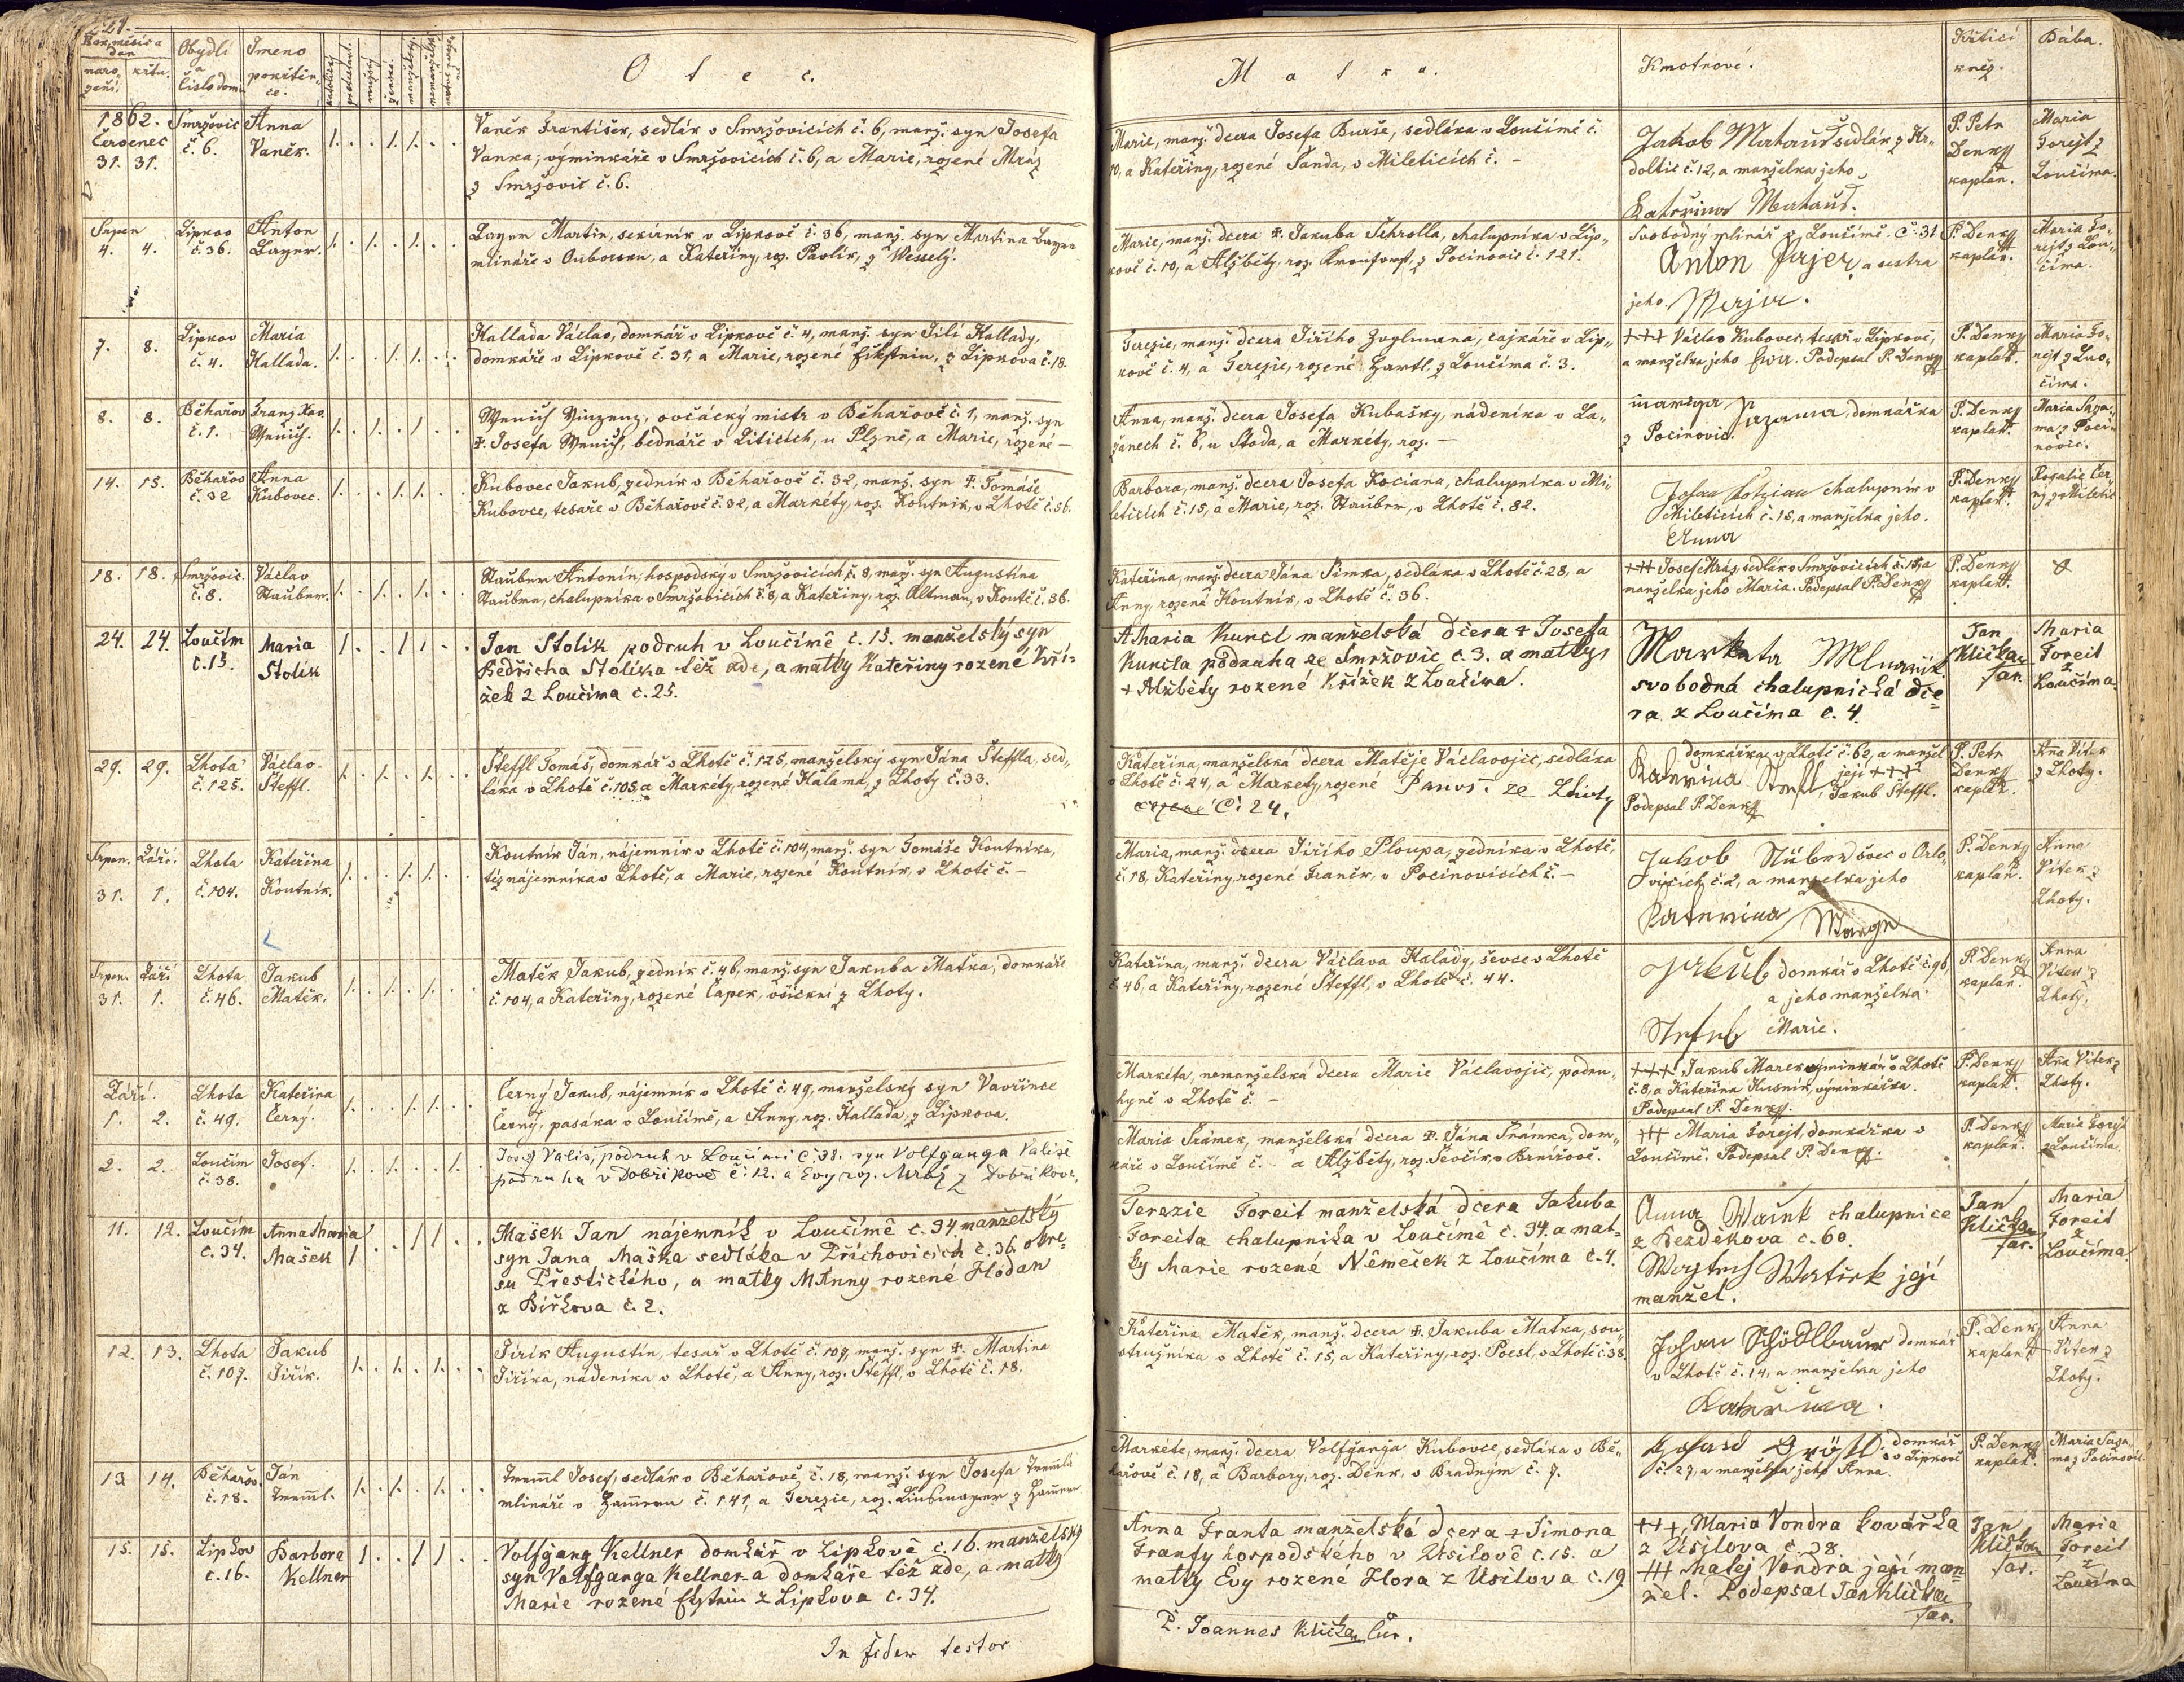 221.
Rok, měsíc a den
naro-
zení.
křtu.
Obydlí
a
číslo dom.
Jmeno
pokřtěn-
ce.
katolický
protestant.
mužský
ženské.
manželský.
nemanželsk.
Otec.
Matka.
Kmotrové.
Křtící
kněz.
Bába.
1862.
Červenec
31. 31.
Smržovic
č. 6.
Anna
Vaněk.
Vaněk František, sedlák v Smržovicích č. 6, manž. syn Josefa
Vaňka, výminkáře v Smržovicích č. 6, a Marie, rozené Mráz
z Smržovic č. 6.
Marie, manž. dcera Josefa Burše, sedláka v Loučimě č.
10, a Kateřiny, rozené Šanda, v Mileticích č. -
Jakob Mataus sedlák z Hr-
doltic č. 12, a manželka jeho
Kateřina Mataus.
P. Petr
Denky
kaplan.
Maria
Forejt z
Loučima.
Srpen
4. 4.
Lipkov
č. 36.
Anton
Bayer.
Bayer Martin, sekerník v Lipkově č. 36, manž. syn Martina Bayera
mlináře v Ouborsku, a Kateřiny, roz. Pavlík, z Wesselý.
Marie, manž. dcera †. Jakuba Schrolla, chalupníka v Lip-
kově č. 10, a Alžběty, roz. Kronforst, z Pocinovic č. 121.
Svobodný mlinář z Loučimě. Č. 31
Anton Pajer, a sestra
jeho Marja.
P. Denky
kaplan.
Maria Fo-
rejt z Lou-
čima.
7. 8.
Lipkov
č. 4.
Maria
Hallada.
Hallada Václav, domkář v Lipkově č. 4, manž. syn Jiří Hallady,
domkáře v Lipkově č. 31, a Marie, rozené Ekstein, z Lipkova č. 18.
Terezie, manž. dcera Jiřího Zuglmana, cajkáře v Lip-
kově č. 4, a Terezie, rozené Hartl, z Loučima č. 3.
+++ Václav Kubovec, tesař v Lipkově,
a manželka jeho Eva. Podepsal P. Denky
P. Denky
kaplan.
Maria Fo-
rejt z Lou-
čima.
8. 8.
Běhařov
č. 1.
Franz Xav.
Wenisch.
Wenisch Vinzenz, ovčácký mistr v Běhařově č. 1, manž. syn
†. Josefa Wenisch, bednáře v Liticích, u Plzně, a Marie, rozené —
Anna, manž. dcera Josefa Kubašky, nádeníka v La-
zanech č. 6, u Stoda, a Markéty, roz. —
mariga Sazama, domkářka
z Pocinovic.
P. Denky
kaplan.
Maria Saza-
ma z Poci-
novic.
14. 15.
Běhařov
č. 32
Anna
Kubovec.
Kubovec Jakub, zedník v Běhařově č. 32, manž. syn †. Tomáše
Kubovce, tesaře v Běhařově č. 32, a Markéty, roz. Koutník, v Lhotě č. 56.
Barbora, manž. dcera Josefa Kociana, chalupníka v Mi-
leticích č. 15, a Marie, roz. Stauber, v Lhotě č. 82.
Johan Kotzian chalupník v
Mileticích č. 15, a manželka jeho.
Anna
P. Denky
kaplan.
Rozalie Čer-
ný z Miletic
18. 18.
Smržovic.
č. 8.
Václav
Stauber.
Stauber Antonín, hospodský v Smržovicích, č. 8, manž. syn Augustina
Staubra, chalupníka v Smržovicích č. 8, a Kateřiny, roz. Altman, v Koutě č. 36.
Kateřina, manž. dcera Jána Šimka, sedláka v Lhotě č. 28, a
Anny, rozené Koutník, v Lhotě č. 36.
+++ Josef Mráz, sedlák v Smržovicích č. 15, a
manželka jeho Maria. Podepsal P. Denky
P. Denky
kaplan.
24. 24.
Loučim
č. 15.
Maria
Stolík
Jan Stolík podruh v Loučimě č. 15. manželský syn
Bedřicha Stolíka též zde, a matky Kateřiny rozené Kří-
žek z Loučima č. 25.
Maria Kuncl manželská dcera † Josefa
Kuncla podruha ze Smržovic č. 3. a matky
† Alžběty rozené Křížek z Loučima.
Marketa Mlnarik
svobodná chalupnická dce-
ra z Loučima č. 4.
Jan
Klička
far.
Maria
Foreit
z
Loučima.
29. 29.
Lhota
č. 125.
Václav
Šteffl.
Šteffl Tomáš, domkář v Lhotě č. 125, manželský syn Jána Šteffla, sed-
láka v Lhotě č. 105, a Markéty, rozené Kalama, z Lhoty č. 33.
Kateřina, manželská dcera Matěje Václavojic, sedláka
v Lhotě č. 24, a Markety, rozené Panoš. ze Lhoty
Č. 24.
domkářka v Lhotě č. 62, a manžel
Katerina Steffl, její +++
Jakub Šteffl.
Podepsal P. Denky
P. Petr
Denky
kaplan.
Anna Vítek
z Lhoty.
Srpen. Září.
31. 1.
Lhota
č. 104.
Kateřina
Koutník.
Koutník Ján, nájemník v Lhotě č. 104, manž. syn Tomáše Koutníka,
též nájemníka v Lhotě, a Marie, rozené Koutník, v Lhotě č. -
Maria, manž. dcera Jiřího Ploupa, zedníka v Lhotě,
č. 18, Kateřiny, rozené Franěk, v Pocinovicích č. -
Jakob Stüber švec v Orlo-
vicích č. 2, a manželka jeho
Katerina
P. Denky
kaplan.
Anna
Vítek z
Lhoty.
Srpen. Září
31. 1.
Lhota
č. 46.
Jakub
Matěk.
Matěk Jakub, zedník č. 46, manž. syn Jakuba Maťka, domkáře
č. 104, a Kateřiny, rozené Čapek, všickni z Lhoty.
Kateřina, manž. dcera Václava Halady, ševce v Lhotě
č. 46, a Kateřiny, rozené Šteffl, v Lhotě č. 44.
Jakub domkář v Lhotě č. 96,
a jeho manželka
Marie.
P. Denky
kaplan.
Anna
Vítek z
Lhoty.
Září.
1. 2.
Lhota
č. 49.
Kateřina
Černý.
Černý Jakub, nájemník v Lhotě č. 49, manželský syn Vavřince
Černý, pasáka v Loučimě, a Anny, roz. Hallada, z Lipkova.
Markéta, nemanželská dcera Marie Václavojic, podru-
hyně v Lhotě č. -
+++ Jakub Marek výminkář v Lhotě
č. 8, a Kateřina Kusník, výminkářka.
Podepsal P. Denky.
P. Denky
kaplan.
Anna Vítek z
Lhoty.
2. 2.
Loučim
č. 38.
Josef.
Josef Vališ, podruh v Loučimi č. 38. syn Volfganga Vališe
podruha v Dobříkově č. 12. a Evy roz. Mráz z Dobříkova.
Maria Šrámek, manželská dcera †. Jána Šrámka, dom-
káře v Loučimě č. - a Alžběty, roz. Ševčík v Brnířově.
+++ Maria Forejt, domkářka v
Loučimě. Podepsal P. Denky.
P. Denky
kaplan.
Marie Forejt
z Loučima.
11. 12.
Loučim
č. 34.
Anna Maria
Mašek
Mašek Jan nájemník v Loučimě č. 34 manželský
syn Jana Maška sedláka v Příchovicích č. 36. okre-
su Přestického, a matky M Anny rozené Hodan
z Biřkova č. 2.
Terezie Foreit manželská dcera Jakuba
Foreita chalupníka v Loučimě č. 34. a mat-
ky Marie rozené Němeček z Loučima č. 4.
Anna chalupnice
z Bezděkova č. 60.
její
manžel.
Jan
Klička
far.
Maria
Foreit
z
Loučima
12. 13.
Lhota
č. 107.
Jakub
Jiřík.
Jiřík Augustin, tesař v Lhotě č. 107, manž. syn †. Martina
Jiříka, nádeníka v Lhotě, a Anny, roz. Šteffl, v Lhotě č. 18.
Kateřina Matěk, manž. dcera †. Jakuba Maťka, sou-
stružníka v Lhotě č. 15, a Kateřiny, roz. Pocsl, v Lhotě č. 38.
Johan Schödlbaur domkář
v Lhotě č. 14, a manželka jeho
Kateřina.
P. Denky
kaplan.
Anna
Vítek z
Lhoty.
13 14.
Běhařov.
č. 18.
Ján
Treml.
Treml Josef, sedlák v Běhařově, č. 18, manž. syn Josefa Tremla
mlináře v Hamern č. 141, a Terezie, roz. Linsmayer z Hamern
Markéte, manž. dcera Volfganga Kubovce, sedláka v Bě-
hařově č. 18, a Barbory, roz. Denk, v Bradným č. 7.
domkář
v Lipkově
č. 27, a manželka jeho Anna.
P. Denky
kaplan.
Maria Saza-
ma z Pocinovic.
15. 15.
Lipkov
č. 16.
Barbora
Kellner
Volfgang Kellner domkář v Lipkově č. 16. manželský
syn Volfganga Kellner-a domkáře též zde, a matky
Marie rozené Ekstein z Lipkova č. 34.
Anna Franta manželská dcera † Šimona
Franty hospodského v Úsilově č. 15. a
matky Evy rozené Hora z Úsilova č. 19
+++, Maria Vondra kovářka
z Úsilova č. 38.
+++ Matej Vondra její man-
žel. Podepsal Jan Klička
far.
Jan
Klička
far.
Maria
Foreit
z
Loučima
In fidem testor
P. Joannes Klička Cur.